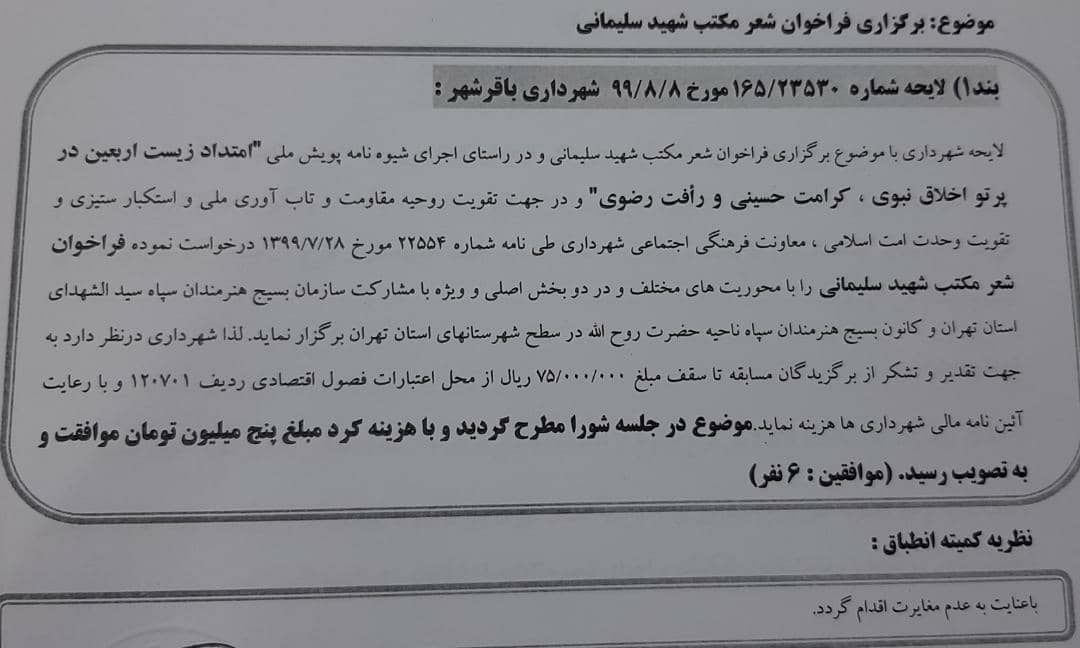 موضوع: برگزاری فراخوان شعر مکتب شهید سلیمانی
بند۱) لایحه شماره ۱۶۵/۲۳۵۳۰ مورخ ۹۹/۸/۸ شهرداری باقرشهر :
لایحه شهرداری با موضوع برگزاری فراخوان شعر مکتب شهید سلیمانی و در راستای اجرای شیوه نامه پویش ملی "امتداد زیست اربعین در
پرتو اخلاق نبوی ، کرامت حسینی و رأفت رضوی" و در جهت تقویت روحیه مقاومت و تاب آوری ملی و استکبار ستیزی و
تقویت وحدت امت اسلامی ، معاونت فرهنگی اجتماعی شهرداری طی نامه شماره ۲۲۵۵۴ مورخ ۱۳۹۹/۷/۲۸ درخواست نموده فراخوان
شعر مکتب شهید سلیمانی را با محوریت های مختلف و در دو بخش اصلی و ویژه با مشارکت سازمان بسیج هنرمندان سپاه سید الشهدای
استان تهران و کانون بسیج هنرمندان سپاه ناحیه حضرت روح الله در سطح شهرستانهای استان تهران برگزار نماید. لذا شهرداری درنظر دارد به
جهت تقدیر و تشکر از برگزیدگان مسابقه تا سقف مبلغ ۷۵/۰۰۰/۰۰۰ ریال از محل اعتبارات فصول اقتصادی ردیف ۱۲۰۷۰۱ و با رعایت
آئین نامه مالی شهرداری ها هزینه نماید.موضوع در جلسه شورا مطرح گردید و با هزینه کرد مبلغ پنج میلیون تومان موافقت و
به تصویب رسید. (موافقین : ۶ نفر)
نظریه کمیته انطباق :
باعنایت به عدم مغایرت اقدام گردد.